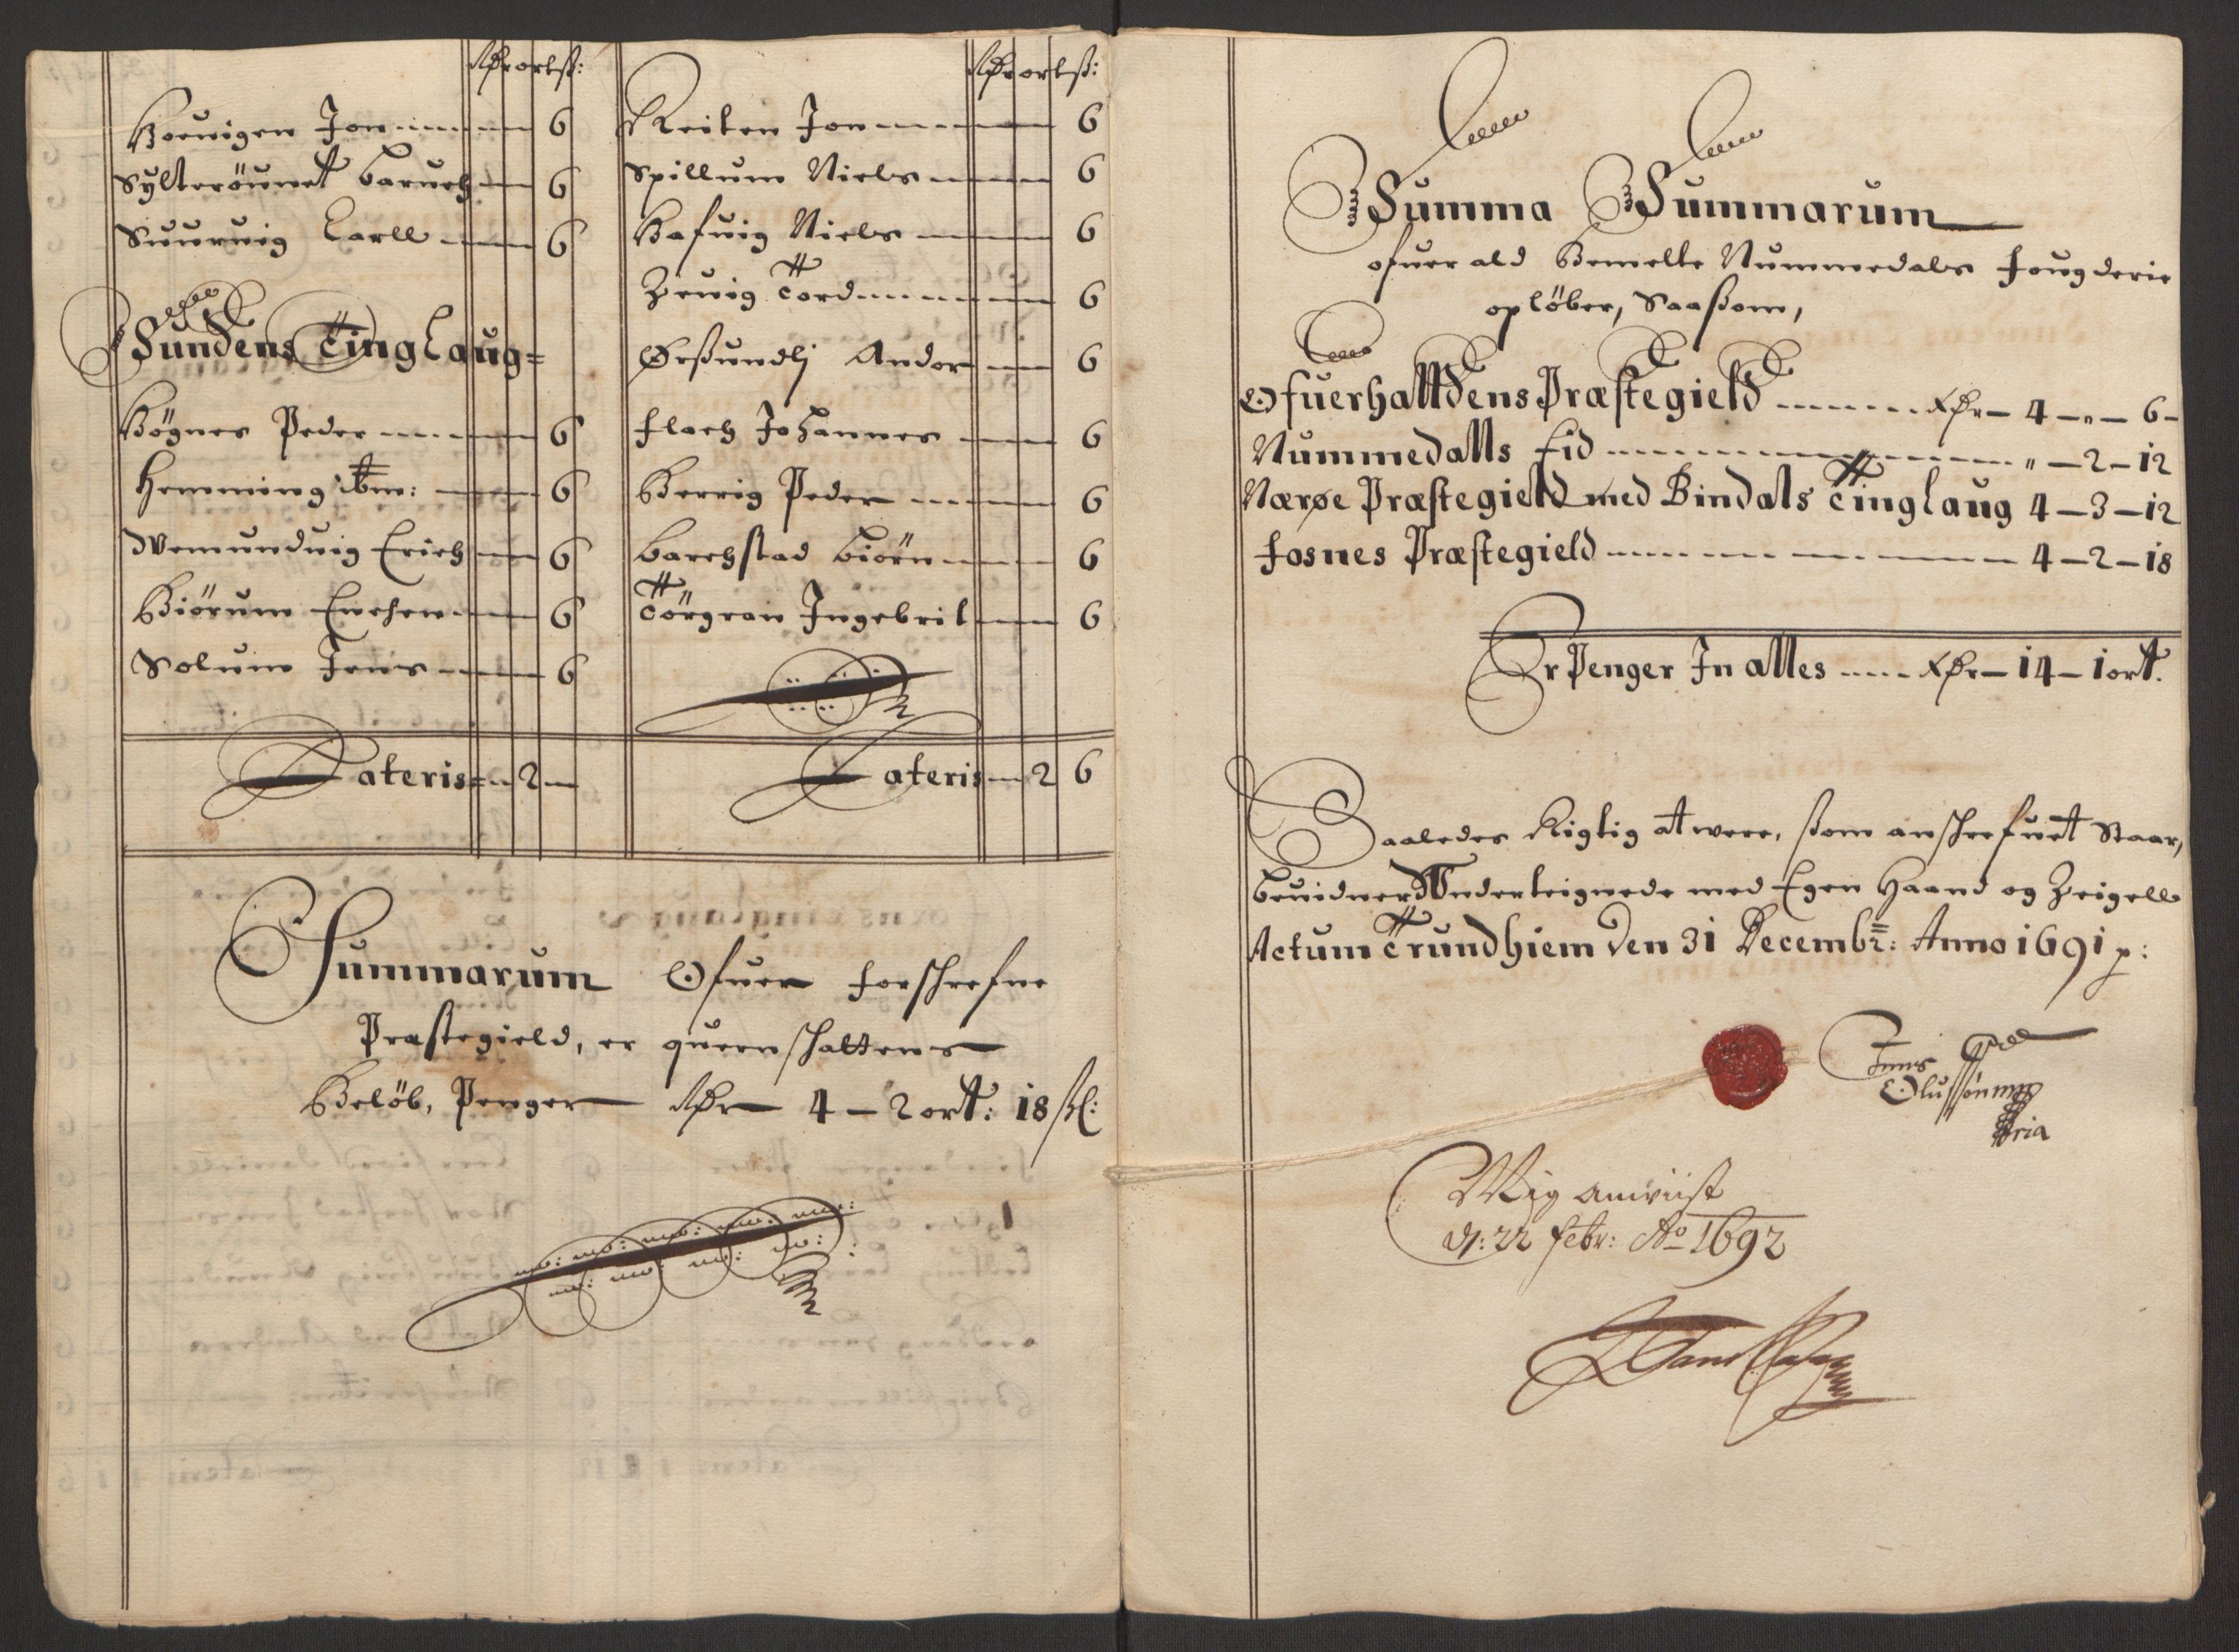 Rdr ort ß:
Boeuigen Jon 6
Sylterøunet Baruch 6
Suurvig Carll 6
Sundens TingLaug=
Høgnes Peder 6
Hemming ibm: 6
Wemunduig Erich 6
Biørum Enchen 6
Solum Jens 6
Lateris 2
Rdr ort ß:
Reiten Jon 6
Spillum Niels 6
Hafuig Niels 6
Zeuig Tord 6
Ørßundlj Andor 6
Flach Johannes 6
Berrig Peder 6
Barchstad Biørn 6
Törgran Ingebrit 6
Lateris 2 6
Summarum Ofuer forschrefne
Præstegield, er quernschattens
Beløb, Penger Rdr 4 – 2 ort: 18 ßl:
Summa Summarum
ofuer ald Bemelte Nummedals fougderie
opløber, Saaßom,
OfuerhalldensPræstegield Rdr – 4 – „ – 6 –
Nummedalls Eid „ – 2 – 12
Nærøe Præstegield med Bindals TingLaug 4 – 3 – 12
Fosnes Præstegield 4 – 2 – 18
Er Penger In alles Rdr – 14 – 1 ort.
Saaledes Rigtig at were, ßom anschrefuet Staar,
beuidner Wnderteignede med Egen Haand og Zeigell
Actum Trundhiem den 31 Decembr: Anno 1691 p:
Jens
Olußøn mp
pria
Mig anviist
d: 22 febr: Ao 1692